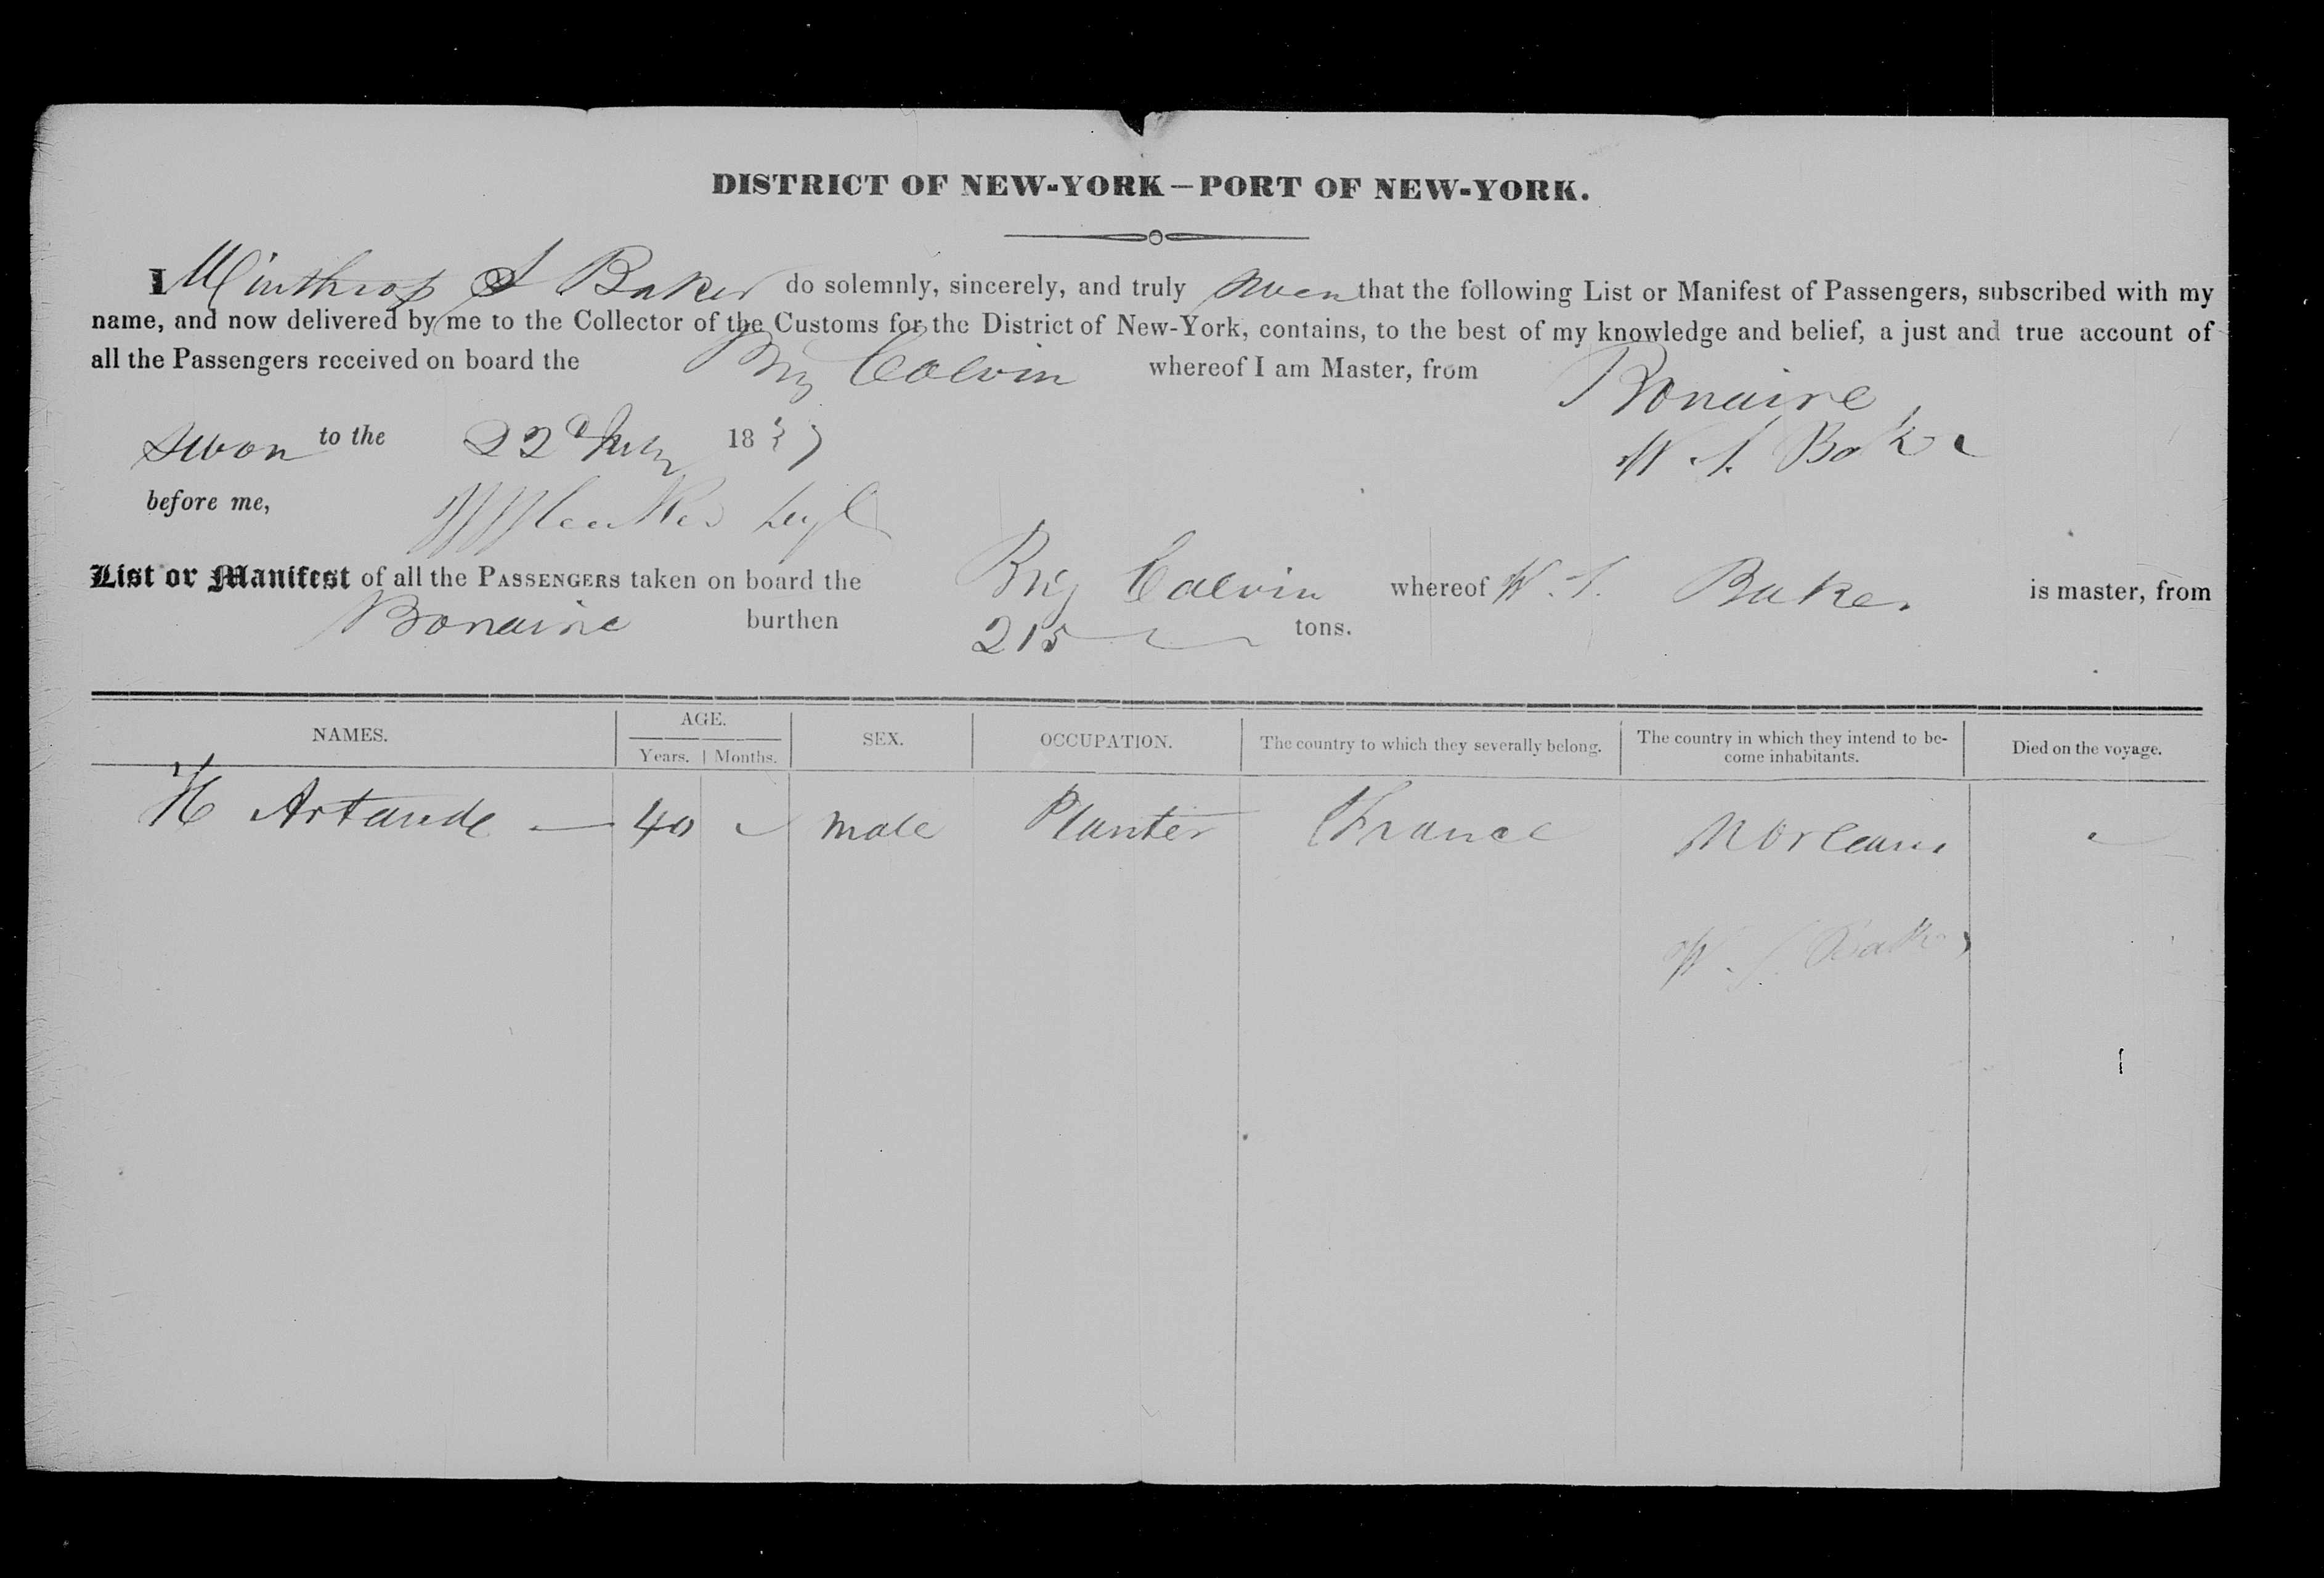 DISTRICT OF NEW-YORK—PORT OF NEW-YORK.
I Winthrop S Baker do solemnly, sincerely, and truly swear that the following List or Manifest of Passengers, subscribed with my
name, and now delivered by me to the Collector of the Customs for the District of New-York, contains, to the best of my knowledge and belief, a just and true account of
all the Passengers received on board the Brig Calvin whereof I am Master, from Bonaire
Swon to the 22d July 1837 W. S. Baker
before me,
List or Manifest of all the PASSENGERS taken on board the Brig Calvin whereof W. S. Baker is master, from
Bonaire burthen 215 tons.
NAMES. AGE. Years. Months. SEX. OCCUPATION. The country to which they severally belong. The country in which they intend to be-
come inhabitants. Died on the voyage.
H Artaude — 40 male Planter France N Orleans
W. S. Baker